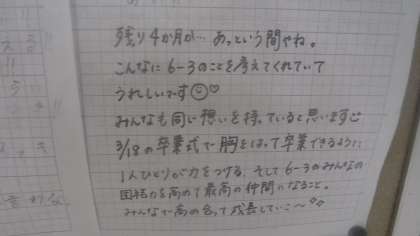 残り4か月が… あっという間やね。
こんなに6-3のことを考えてくれていて
うれしいです☺♡
みんなも同じ想いを持っていると思います☺
3/18の卒業式で胸をはって卒業できるように
1人ひとりが力をつける、そして6-3のみんなの
団結力を高めて最高の仲間になること。
みんなで高め合って成長していこ〜